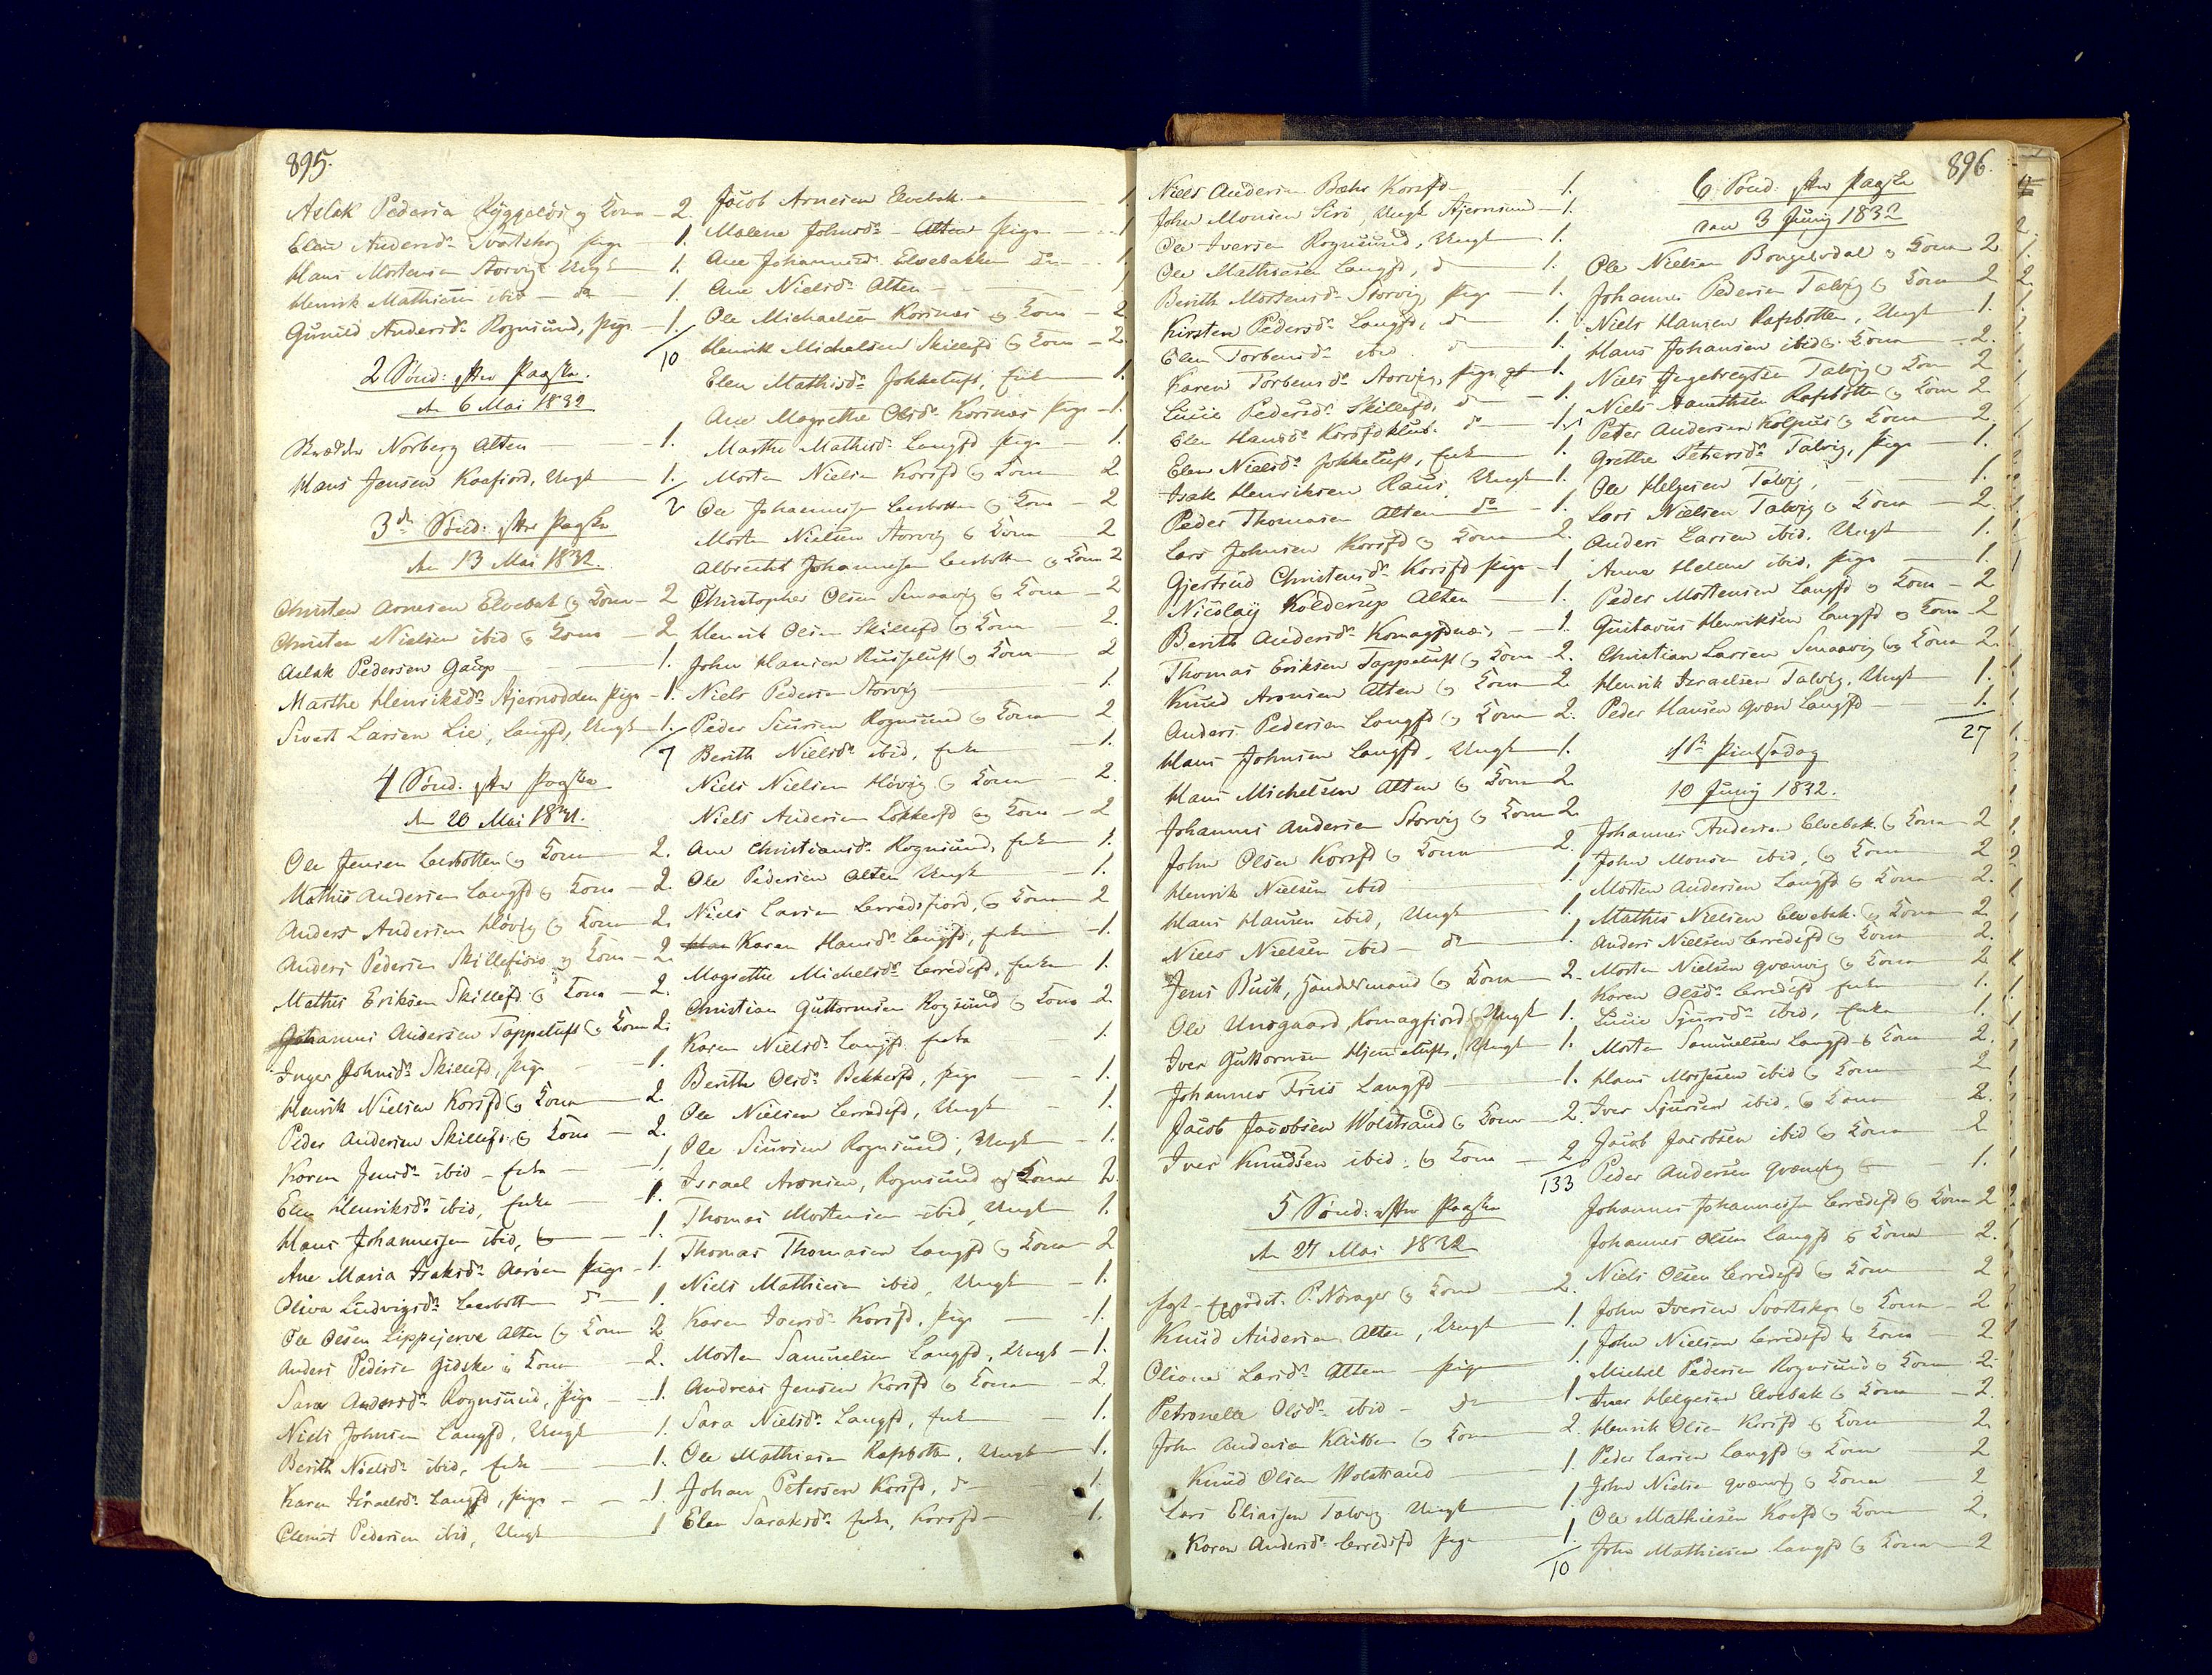 895.
Aslak Pedersen Ryggelös og Kone - 2.
Elen Andersdr Svartskog pige - 1.
Hans Mortensen Storvig Ungk - 1.
Henrik Mathisen ibid - do - 1.
Gunild Andersdr Rognsund, pige - 1.
10
2 Sönd: efter Paaske.
den 6 Mai 1832
Norberg Alten - 1.
Hans Jensen Kaafiord, Ungk - 1.
2
3de Sönd: efter Paaske
den 13 Mai 1832.
Christen Arnesen Elvebak og Kone - 2
Christen Nielsen ibid og Kone - 2
Aslak Pedersen Gaup - 1.
Marthe Henriksdr Stjernodden pige - 1.
Sivert Larsen Lie, Langfd, Ungk - 1.
7
4 Sönd: efter Paaske
den 20 Mai 1832.
Ole Jensen Leerbotten og Kone - 2.
Mathis Andersen Langfd og Kone - 2.
Anders Andersen Hövig og Kone - 2.
Anders Pedersen Skillefiord og Kone - 2.
Mathis Eriksen Skillefd og Kone - 2.
Johannes Andersen Tappeluft og Kone 2.
Inger Johnsdr Skillefd, pige - 1.
Henrik Nielsen Korsfd og Kone - 2.
Peder Andersen Skillefd og Kone - 2.
Karen Jensdr ibid - enke - 1
Elen Henriksdr ibid, enke - 1.
Hans Johannessen ibid, - 1.
Ane Maria Isaksdr Aaröen pige - 1.
Oliva Ludvigsdr Leerbotten do - 1.
Ole Olsen Lippejerve Alten og Kone 2
Anders Pedersen Gidske og Kone - 2.
Sara Andersdr Rognsund, pige - 1.
Niels Johnsen Langfd, Ungk - 1.
Berith Nielsdr ibid, enke - 1.
Karen Israelsdr Langfd, pige - 1.
Clemet Pedersen ibid, Ungk - 1
Jacob Arnesen Elvebak - 1
Malene Johnsdr - Alten pige - 1
Ane Johannesdr Elvebakken do - 1.
Ane Nielsdr Alten - 1
Ole Michaelsen Korsnes og Kone - 2
Henrik Michelsen Skillefd og Kone - 2.
Elen Mathisdr Jokkeluft, enke - 1.
Ane Magrethe Olsdr Korsnes pige - 1.
Marthe Mathisdr Langfd pige - 1.
Morten Nielsen Korsfd og Kone 2
Ole Johannessen Leerbotten og Kone - 2
Morten Nielsen Storvig og Kone - 2
Albrecht Johannessen Leerbotten og Kone 2
Christopher Olsen Smaavig og Kone - 2
Henrik Olsen Skillefd og Kone - 2.
John Hansen Russeluft og Kone - 2
Niels Pedersen Storvig - 1.
Peder Siursen Rognsund og Kone 2
Berith Nielsdr ibid, enke - 1.
Niels Nielsen Hövig og Kone - 2.
Niels Andersen Lökkefd og Kone - 2
Ane Christiansdr Rognsund, enke 1.
Ole Pedersen Alten Ungk - 1.
Niels Larsen Lerredsfiord, og Kone 2
Karen Hansdr Langfd, enke - 1.
Magrethe Michelsdr Lerredsfd, enke 1.
Christian Guttormsen Rognsund og Kone - 2.
Karen Nielsdr Langfd enke - 1.
Berithe Olsdr Bekkerfd, pige - 1.
Ole Nielsen Lerredsfd, Ungk - 1.
Ole Siursen Rognsund, Ungk - 1.
Israel Aronsen, Rognsund og Kone 2.
Thomas Mortensen ibid, Ungk 1.
Thomas Thomasen Langfd og Kone 2
Niels Mathisen ibid, Ungk - 1.
Karen Iversdr Korsfd, pige - 1.
Morten Samuelsen Langfd, Ungk - 1.
Andreas Jensen Korsfd og Kone - 2.
Sara Nielsdr Langfd, enke - 1.
Ole Mathisen Rafsbotten, Ungk - 1.
Johan Petersen Korsfd, do - 1.
Elen Saraksdr enke, Korsfd - 1.
896.
Niels Andersen Bæhr Korsfd - 1.
John Monsen Siri, Ungk Stjernsund - 1.
Ole Iversen Rognsund, Ungk - 1.
Ole Mathiesen Langfd, do - 1.
Berith Mortensdr Storvig, pige - 1.
Kirsten Pedersdr Langfd, do - 1.
Elen Torbensdr ibid do - 1.
Karen Torbensdr Storvig, pige - 1.
Lucie Pedersdr Skillefd, do - 1
Elen Hansdr Korsfdklub. do - 1
Elen Nielsdr Jokkeluft, enke - 1
Isak Henriksen Raus, Ungk - 1.
Peder Thomasen Alten do - 1.
Lars Johnsen Korsfd og Kone 2.
Gjertrud Christensdr Korsfd pige - 1
Nicolay Kolderup Alten - 1.
Berith Andersdr Komagfdnes, - 1.
Thomas Eriksen Tappeluft og Kone 2.
Knud Aronsen Alten og Kone 2.
Anders Pedersen Langfd og Kone 2.
Hans Johnsen Langfd, Ungk - 1.
Hans Michelsen Alten og Kone 2.
Johannes Andersen Storvig og Kone 2.
John Olsen Korsfd og Kone - 2.
Henrik Nielsen ibid - 1.
Hans Hansen ibid, Ungk - 1.
Niels Nielsen ibid - do - 1.
Jens Buck, Handelsmand og Kone - 2.
Ole Undgaard, Komagfjord, Ungk 1.
Iver Guttormsen Hjemeluft, Ungk - 1.
Johannes Friis Langfd - 1.
Jacob Jacobsen Wolstrand og Kone - 2.
Iver Knudsen ibid: og Kone - 2
133
5 Sönd: efter Paaske
den 27 Mai 1832
P. Norager og Kone - 2.
Knud Andersen, Alten, Ungk - 1.
Oliane Larsdr Alten pige - 1
Petronelle Olsdr ibid - do - 1
John Andersen Klübben og Kone - 2.
Knud Olsen Wolstrand - 1.
Lars Eliassen Talvig Ungk - 1.
Karen Andersdr Lerredsfd pige - 1.
10
6 Sönd: efter Paaske
den 3 Juny 1832
Ole Nielsen Bongelvdal og Kone 2
Johannes Pedersen Talvig og Kone 2
Niels Hansen Rafsbotten, Ungk 1.
Hans Johansen ibid og Kone - 2.
Niels Ingebregtsen Talvig og Kone 2
Niels Amethsen Rafsbotten og Kone 2.
Peder Andersen Kolpus og Kone - 2.
Grethe Petersdr Talvig, pige - 1.
Ole Helgesen Talvig, - 1.
Lars Nielsen Talvig og Kone - 2.
Anders Larsen ibid, Ungk - 1.
Anne Helene ibid, pige - 1.
Peder Mortensen Langfd og Kone - 2
Gustavus Henriksen Langfd og Kone - 2
Christian Larsen Smaavig og Kone 2.
Henrik Israelsen Talvig, Ungk 1.
Peder Hansen Qvæn Langfd - 1.
27
1ste Pintsedag
10 Juny 1832.
Johannes Andersen Elvebak og Kone - 2
John Monsen ibid, og Kone - 2
Morten Andersen Langfd og Kone 2.
Mathis Nielsen Elvebak og Kone 2.
Anders Nielsen Lerredsfd og Kone 2.
Morten Nielsen Qvænvig og Kone 2
Karen Olsdr Lerredsfd enke 1.
Lucie Sjursdr ibid, enke 1.
Morten Samuelsen Langfd og Kone 2.
Hans Mosesen ibid og Kone 2
Iver Sjursen ibid, og Kone 2.
Jacob Jacobsen ibid og Kone - 2
Peder Andersen Qvænvig - 1.
Johannes Johannessen Lerredsfd og Kone 2
Johannes Olsen Langfd og Kone 2.
Niels Olsen Lerredsfd og Kone 2
John Iversen Svartskog og Kone - 2
John Nielsen Lerredsfd og Kone - 2
Michel Pedersen Rognsund og Kone 2.
Iver Helgesen Elvebak og Kone - 2.
Henrik Olsen Korsfd og Kone 2.
Peder Larsen Langfd og Kone 2
John Nielsen Qvænvig og Kone - 2
Ole Mathiesen Kaafd og Kone - 2.
John Mathiesen Langfd og Kone - 2